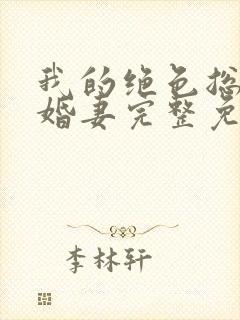 我的绝色总
婚妻完整免
李林轩